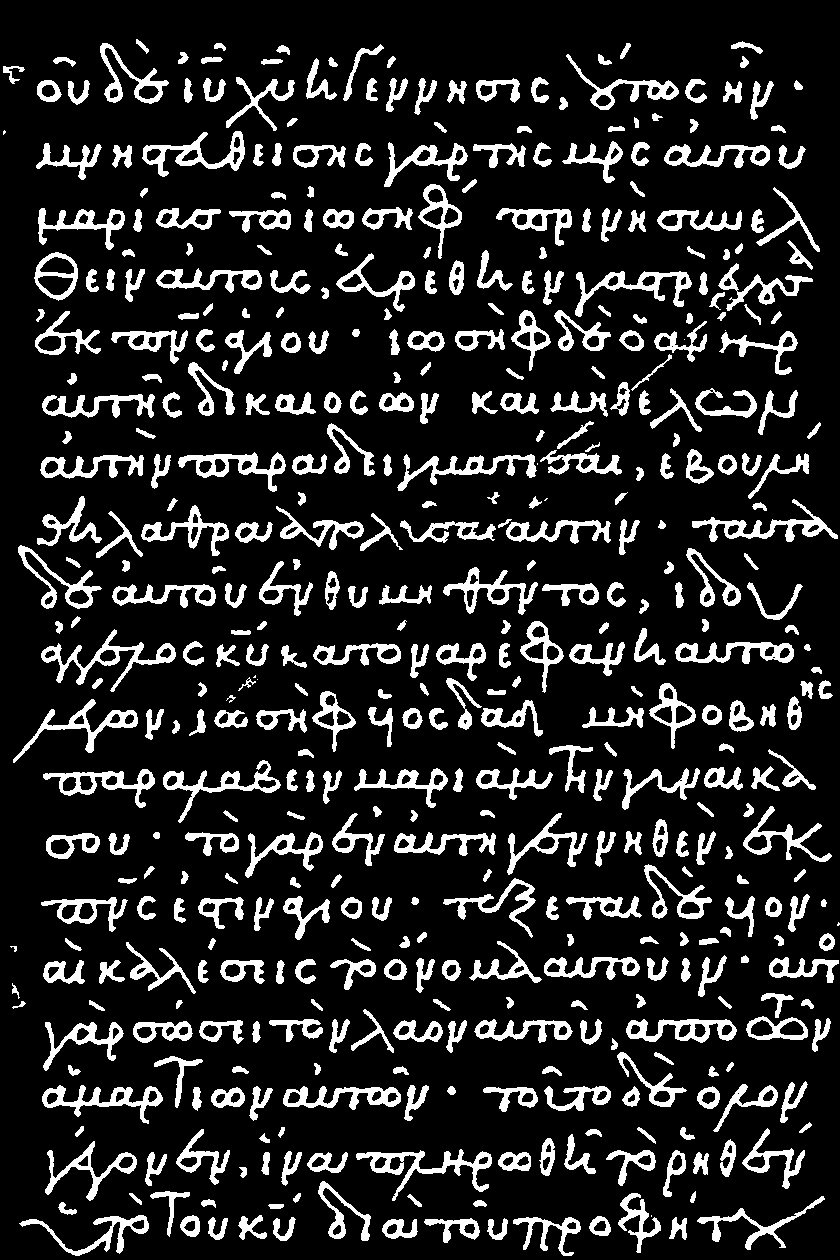 οῦ δὲ ἰῦ χῦ ἡ γέννησις, οὕτως ἦν ·
μνηστευθείσης γὰρ τῆς μρ̅ς αὐτοῦ
μαρίας τῶ ἰωσὴφ πρὶν ἢ συνελ
θεῖν αὐτοὺς, εὑρέθη ἐν γαστρὶ ἔχουσα
ἐκ πν̅ς ἁγίου · ἰωσὴφ δὲ ὁ ἀνὴρ
αὐτῆς δίκαιος ὢν καὶ μὴ θέλων
αὐτὴν παραδειγματίσαι, ἐβουλή
θη λάθρα ἀπολῦσαι αὐτήν · ταῦτα
δὲ αὐτοῦ ἐνθυμηθέντος, ἰδοὺ
ἄγγελος κῡ κατ' ὄναρ ἐφάνη αὐτῶ ·
λέγων, ἰωσὴφ υἱὸς δᾱδ μὴ φοβηθῆς
παραλαβεῖν μαριὰμ τὴν γυναῖκά
σου · τὸ γὰρ ἐν αὐτῆ γεννηθὲν, ἐκ
πν̅ς ἐστὶν ἁγίου · τέξεται δὲ υἱόν ·
καὶ καλέσεις τὸ ὄνομα αὐτοῦ ἰν̅ · αὐτὸς
γὰρ σώσει τὸν λαὸν αὐτοῦ, ἀπὸ τῶν
ἁμαρτιῶν αὐτῶν · τοῦτο δὲ ὅλον
γέγονεν, ἵνα πληρωθῆ τὸ ῥηθὲν
ὑπὸ τοῦ κῡ διὰ τοῦ προφήτου